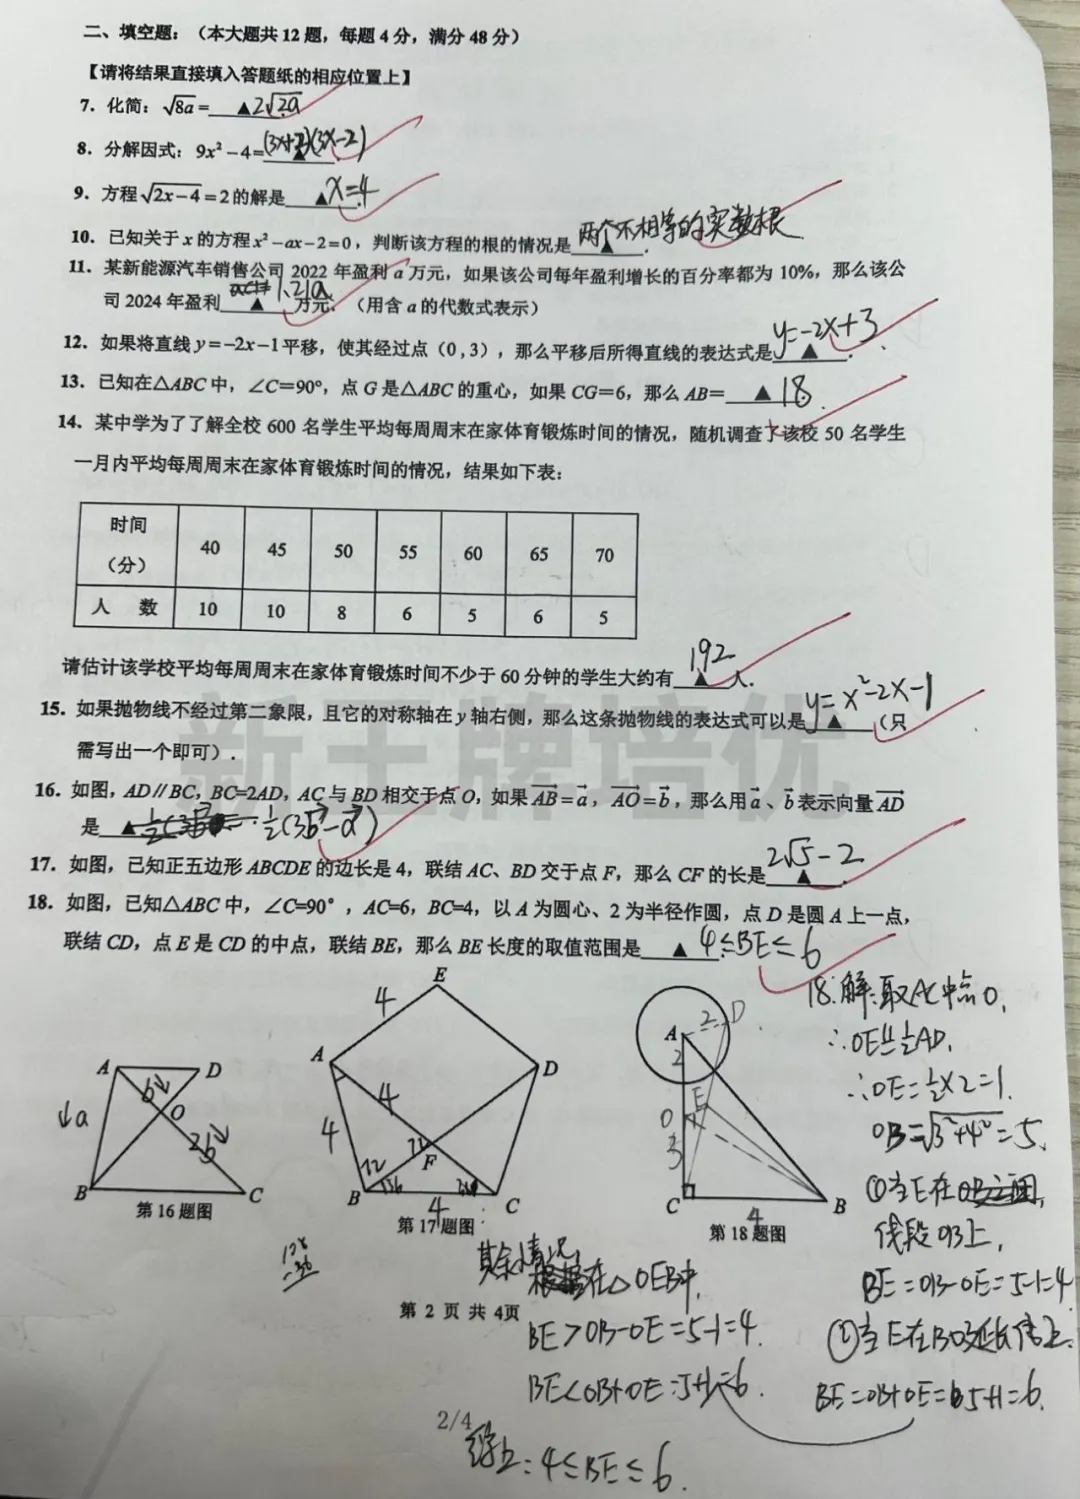 二、填空题：（本大题共 12 题，每题 4 分，满分 48 分）
【请将结果直接填入答题纸的相应位置上】
7．化简：√8a = ▲2√2a
8．分解因式：9x² －4= ▲ (3x+2)(3x-2)
9．方程√2x－4 = 2 的解是 ▲ x=4
10．已知关于 x 的方程 x²－ax－2=0，判断该方程的根的情况是 ▲ . 两个不相等的实数根
11．某新能源汽车销售公司 2022 年盈利 a 万元，如果该公司每年盈利增长的百分率都为 10%，那么该公
司 2024 年盈利 ▲ 1.21a 万元．（用含 a 的代数式表示）
12．如果将直线 y＝−2x−1 平移，使其经过点（0，3），那么平移后所得直线的表达式是 ▲ . y=-2x+3
13．已知在△ABC 中，∠C＝90°，点 G 是△ABC 的重心，如果 CG＝6，那么 AB＝ ▲ 18 .
14．某中学为了了解全校 600 名学生平均每周周末在家体育锻炼时间的情况，随机调查了该校 50 名学生
一月内平均每周周末在家体育锻炼时间的情况，结果如下表：
时间（分） 40 45 50 55 60 65 70
人 数 10 10 8 6 5 6 5
请估计该学校平均每周周末在家体育锻炼时间不少于 60 分钟的学生大约有 ▲ 192 人．
15．如果抛物线不经过第二象限，且它的对称轴在 y 轴右侧，那么这条抛物线的表达式可以是 ▲ y=x²-2x-1 （只
需写出一个即可）．
新王牌培优
16．如图，AD∥BC，BC=2AD，AC 与 BD 相交于点 O，如果 AB = a，AO = b，那么用 a、b 表示向量 AD
是 ▲ ½(3b-a)
17．如图，已知正五边形 ABCDE 的边长是 4，联结 AC、BD 交于点 F，那么 CF 的长是 ▲ . 2√5-2
18．如图，已知△ABC 中，∠C=90°，AC=6，BC=4，以 A 为圆心、2 为半径作圆，点 D 是圆 A 上一点，
联结 CD，点 E 是 CD 的中点，联结 BE，那么 BE 长度的取值范围是 ▲ 4≤BE≤6
A D O B C
a b 2b
第 16 题图
E A D F B C
4 4 4 4 72 72 36
第 17 题图
A D E O C B
2 2 3 4
第 18 题图
18.解：取AC中点O,
∴OE∥=½AD,
∴OE=½×2=1.
OB=√3²+4²=5,
①当E在
线段OB上,
BE=OB-OE=5-1=4
②当E在BO延长线上,
BE=OB+OE=5+1=6.
其余情况,
在△OEB中,
BE>OB-OE=5-1=4.
BE<OB+OE=5+1=6.
综上：4≤BE≤6.
第 2 页 共 4页
2/4